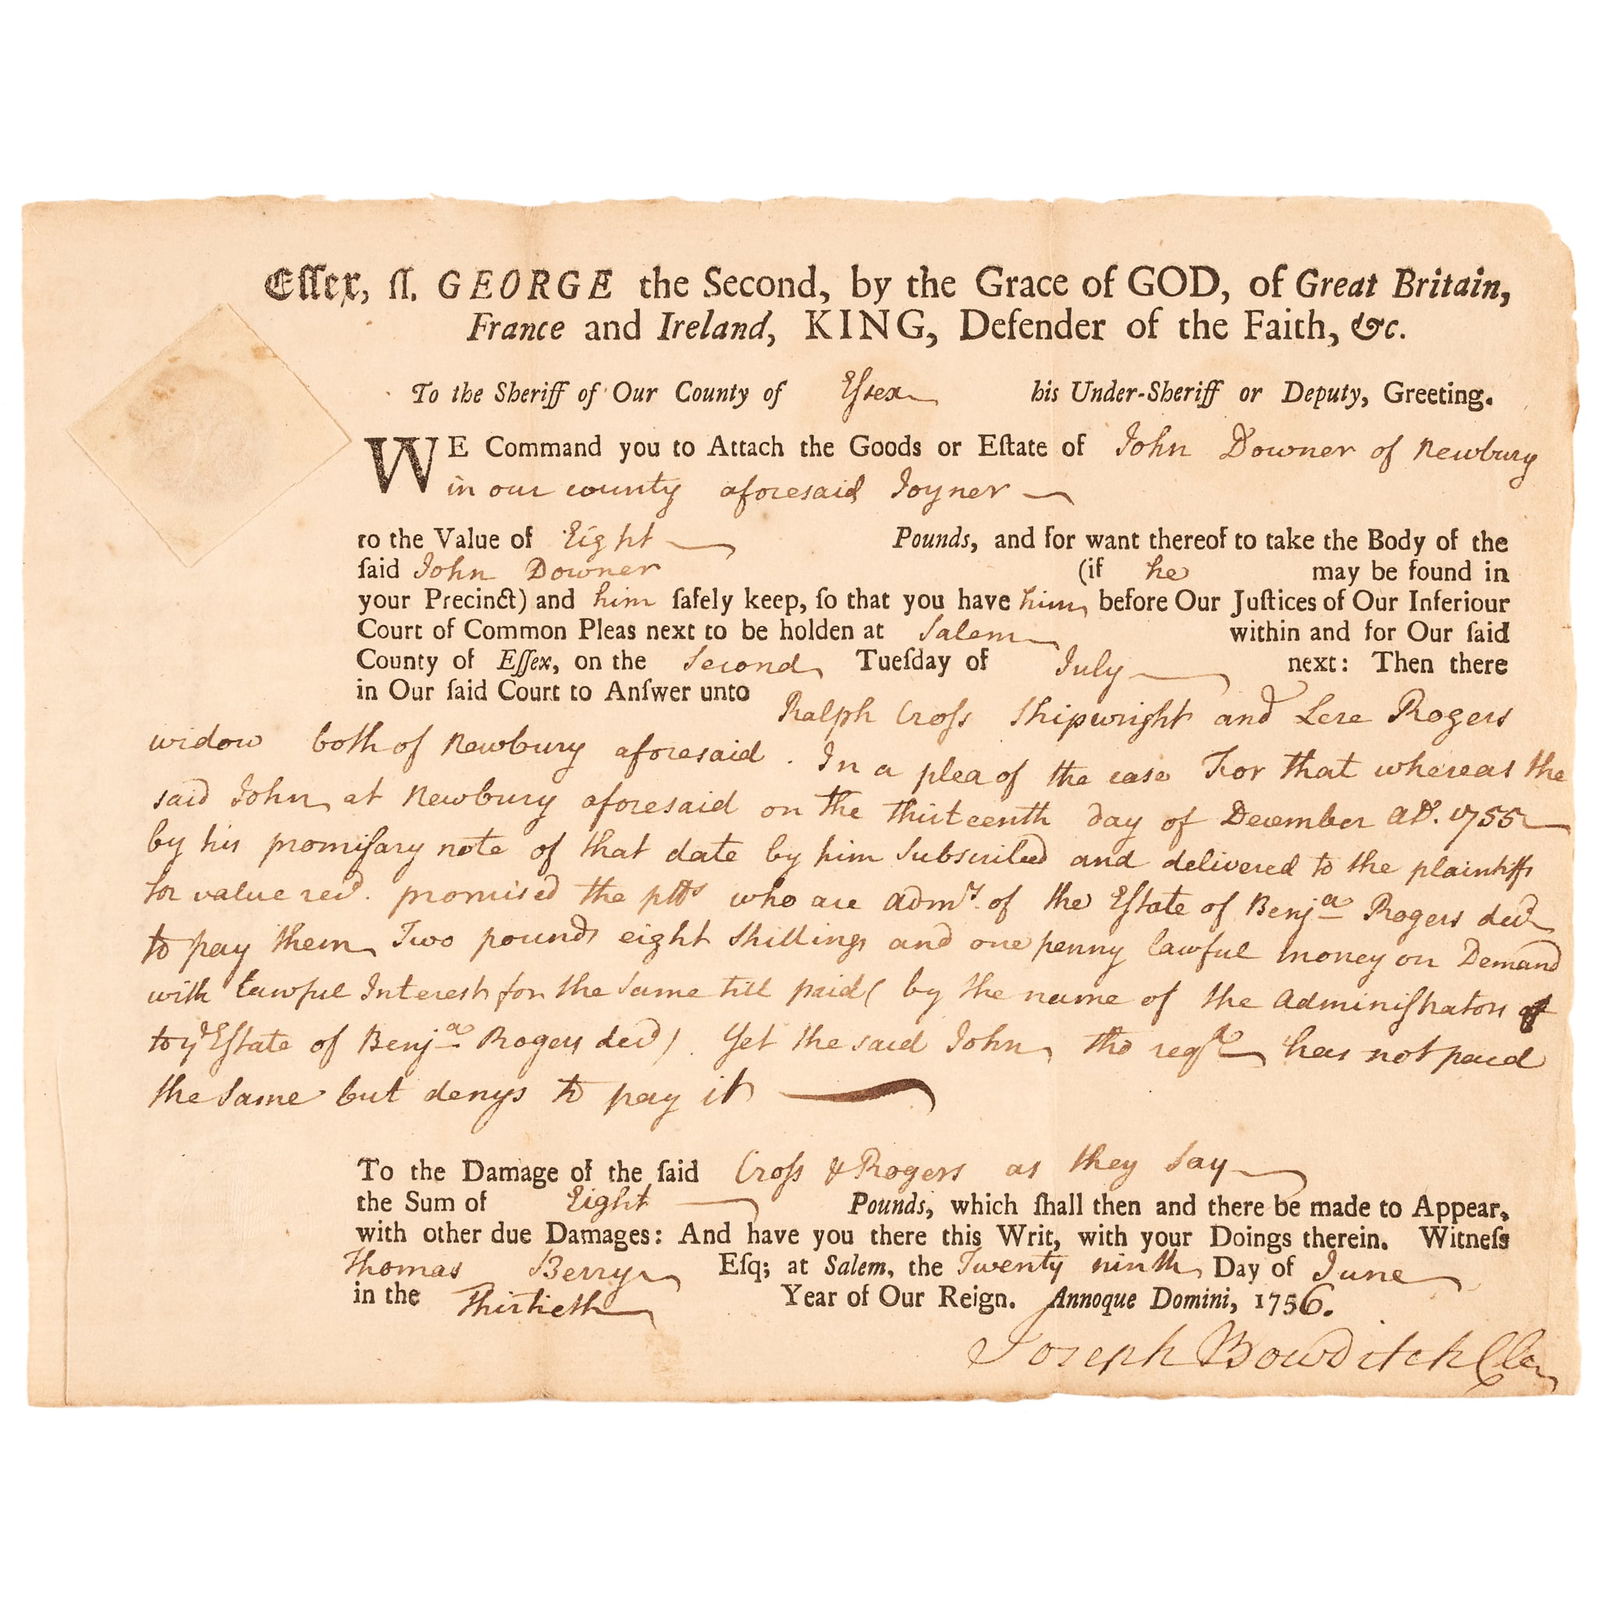 Eſſex, ſſ. GEORGE the Second, by the Grace of GOD, of Great Britain,
France and Ireland, KING, Defender of the Faith, &c.
To the Sheriff of Our County of Eſsex his Under-Sheriff or Deputy, Greeting.
WE Command you to Attach the Goods or Eſtate of John Downer of Newbury
in our county aforesaid Joyner
to the Value of Eight Pounds, and for want thereof to take the Body of the
ſaid John Downer (if he may be found in
your Precinct) and him ſafely keep, ſo that you have him before Our Juſtices of Our Inferiour
Court of Common Pleas next to be holden at Salem within and for Our ſaid
County of Eſſex, on the Second Tueſday of July next: Then there
in Our ſaid Court to Anſwer unto Ralph Croſs Shipwright and Rogers
widow both of Newbury aforesaid. In a plea of the case For that whereas the
said John at Newbury aforesaid on the thirteenth day of December AD. 1755
by his promiſsary note of that date by him Subscribed and delivered to the plaintiffs
for value recd. promised the pltfs who are Admrs. of the Eſtate of Benja Rogers decd
to pay them Two pounds eight Shillings and one penny lawful money on Demand
with lawful Interest for the Same till paid ( by the name of the Adminiſtrators
to ye Eſtate of Benja Rogers decd ) . Yet the said John, tho reqſd has not paid
the Same but denys to pay it
To the Damage of the ſaid Croſs & Rogers as they Say
the Sum of Eight Pounds, which ſhall then and there be made to Appear,
with other due Damages: And have you there this Writ, with your Doings therein. Witneſs
Thomas Berry Eſq; at Salem, the Twenty ninth Day of June
in the Thirtieth Year of Our Reign. Annoque Domini, 1756.
Joseph Bowditch Cler